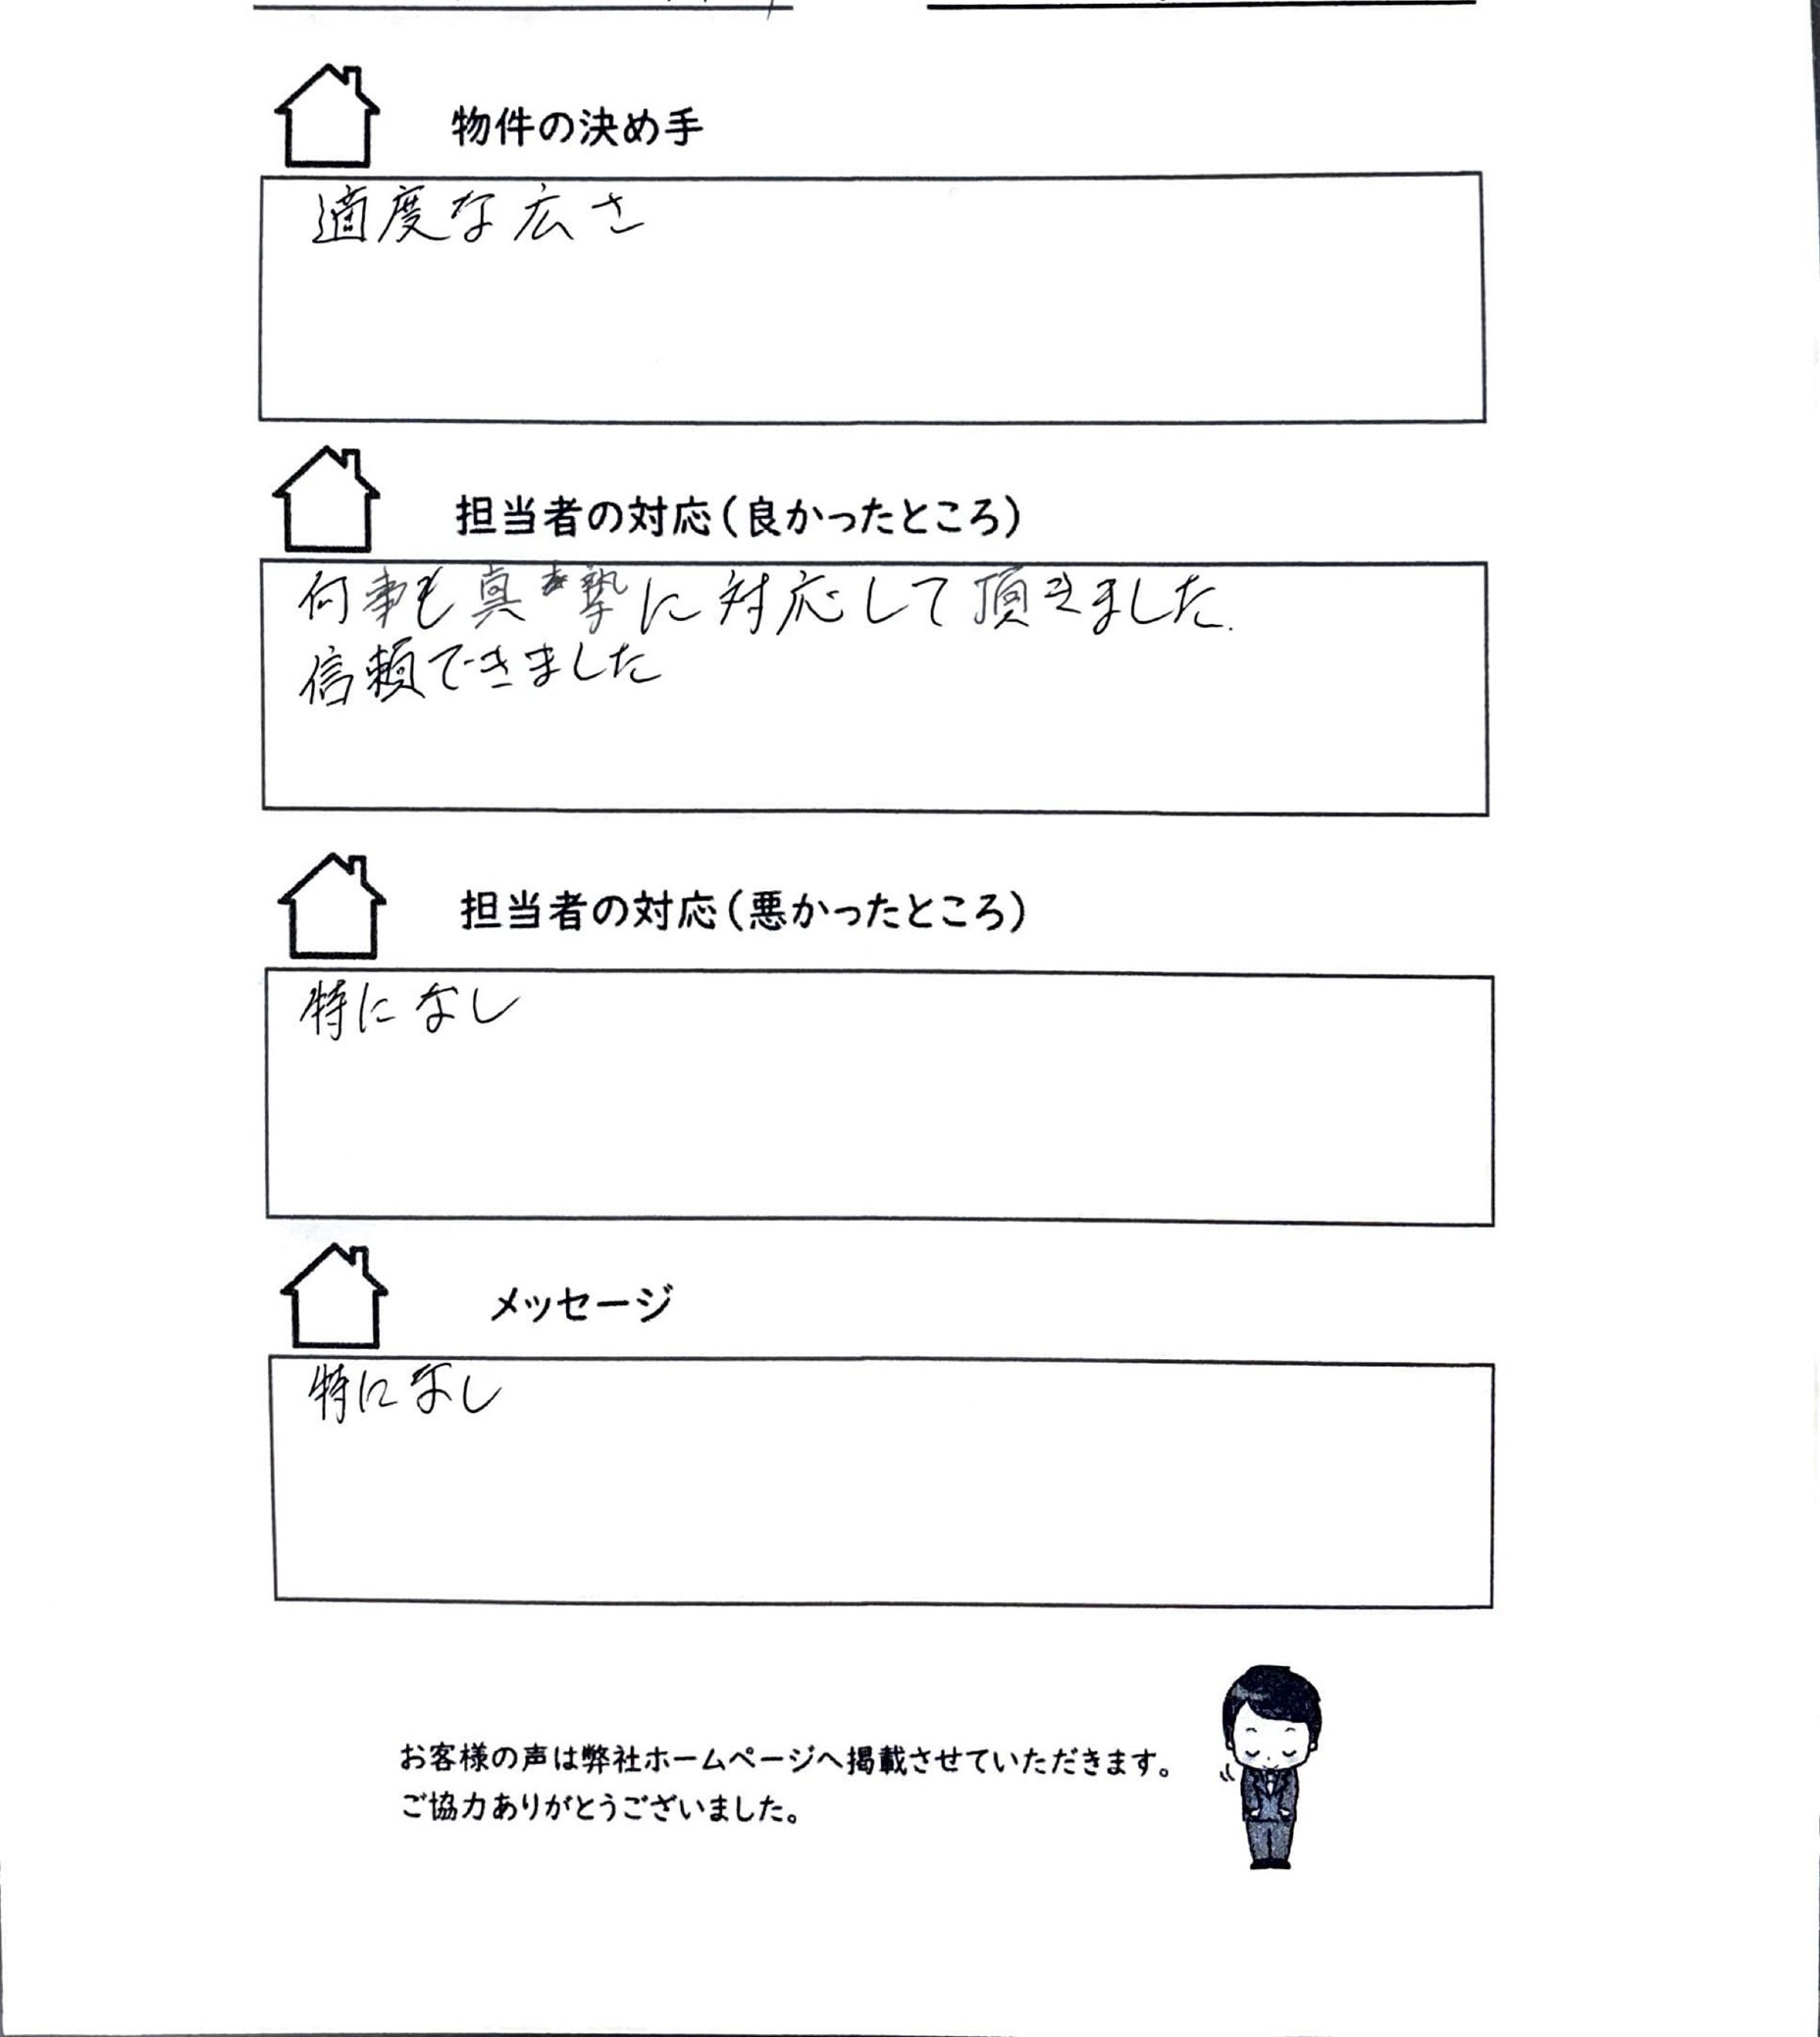 物件の決め手
適度な広さ
担当者の対応(良かったところ)
何事も真摯に対応して頂きました.
信頼できました
担当者の対応(悪かったところ)
特になし
メッセージ
特になし
お客様の声は弊社ホームページへ掲載させていただきます。
ご協力ありがとうございました。